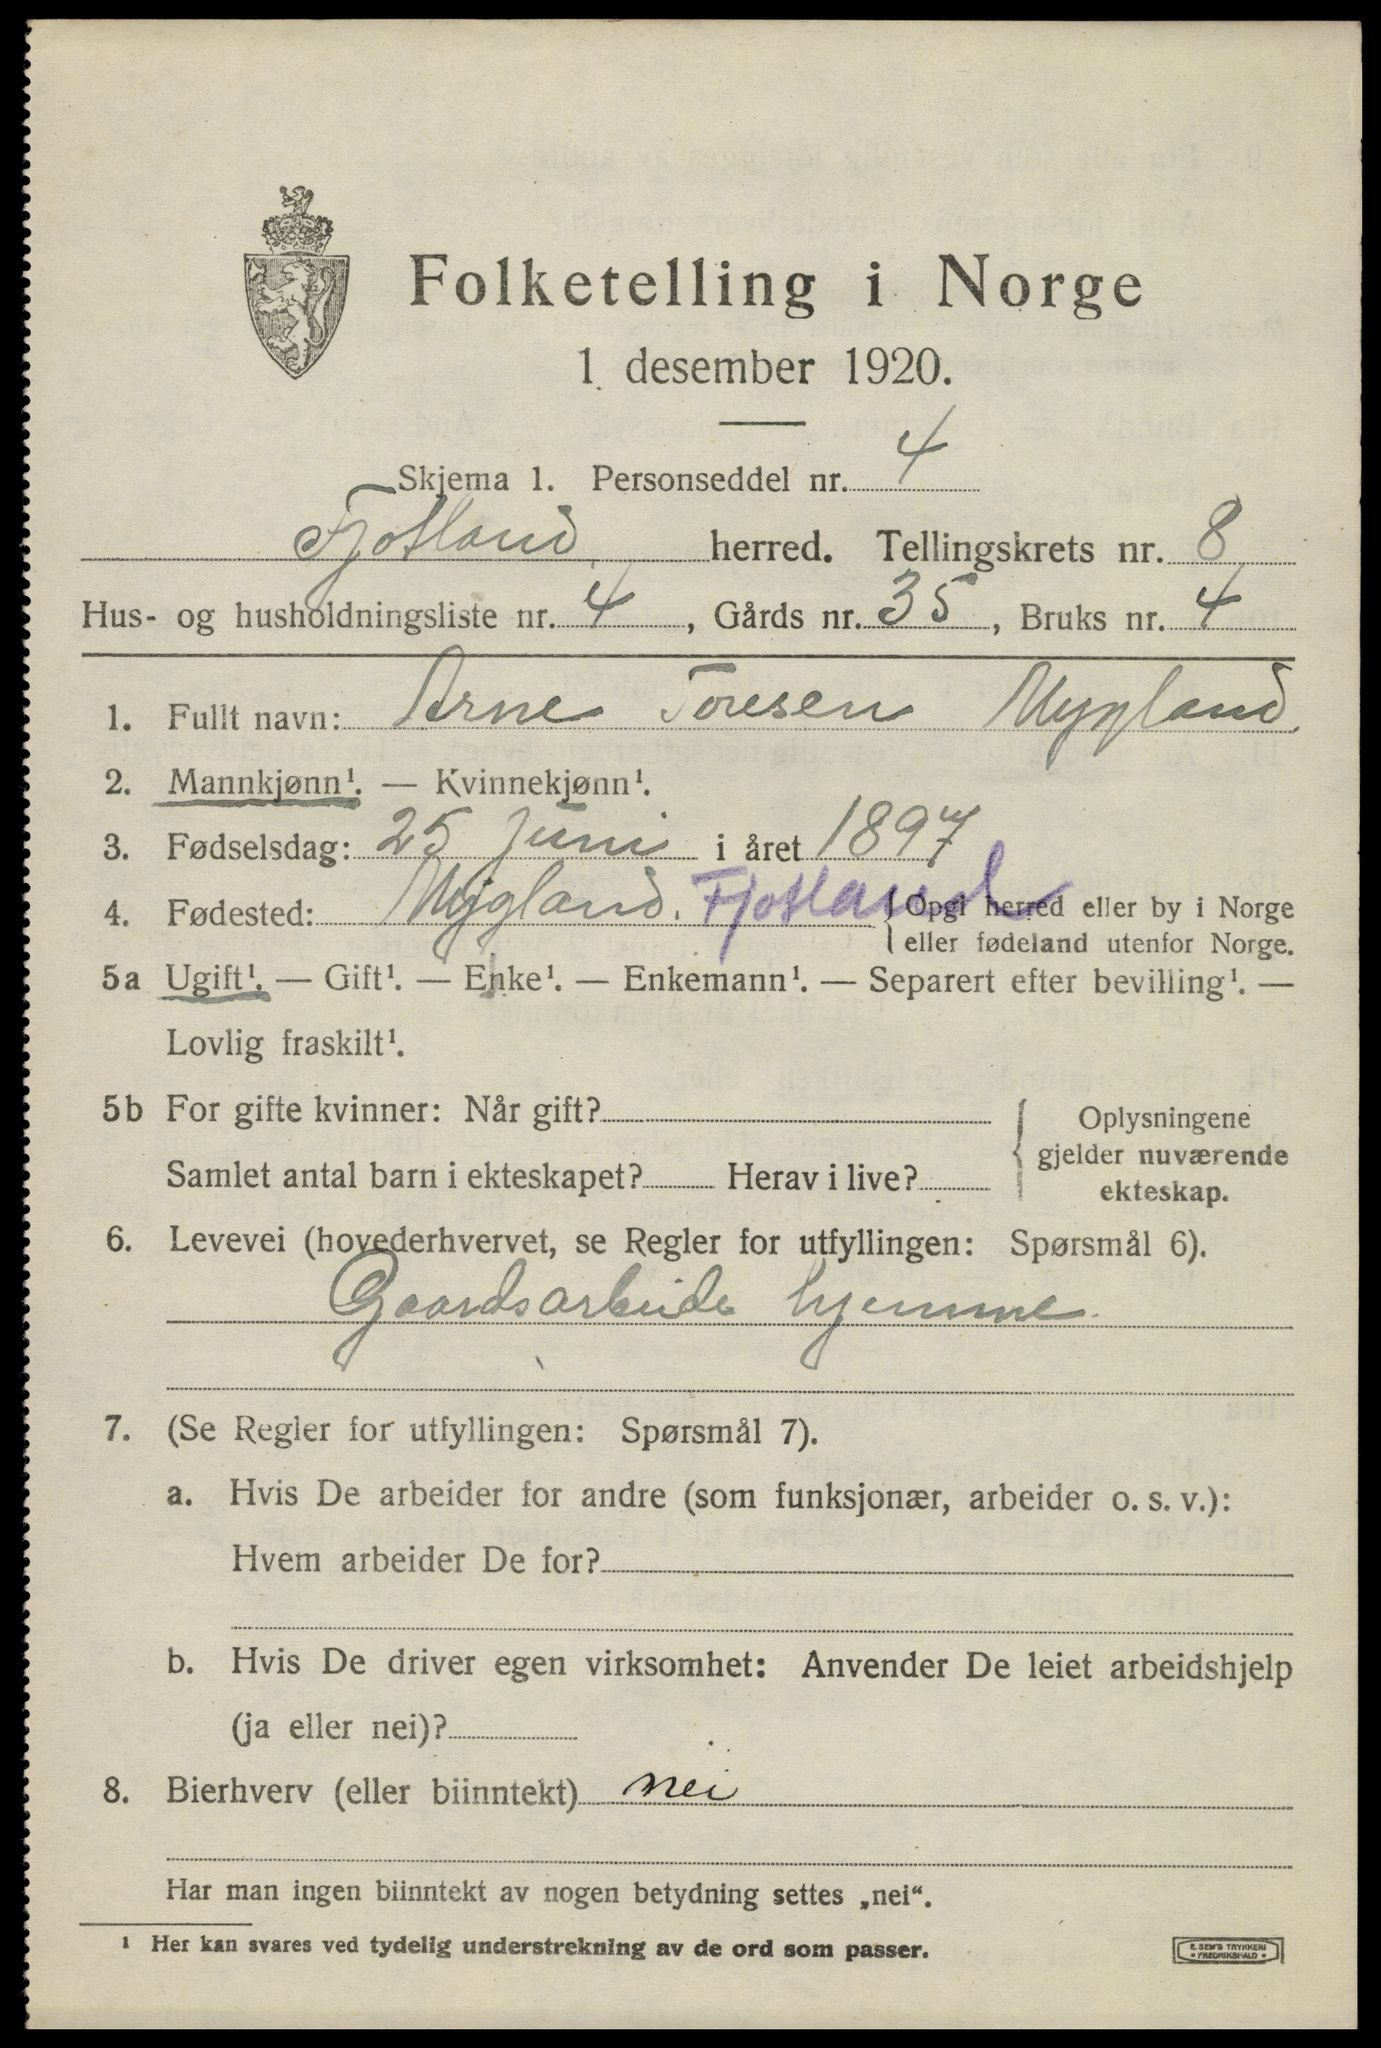 Folketelling i Norge
1. desember 1920.
Skjema 1. Personseddel nr. 4
Fjotland herred. Tellingskrets nr. 8
Hus- og husholdningsliste nr. 4, Gårds nr. 35, Bruks nr. 4
1. Fullt navn: Arne Toresen Mygland
2. Mannkjønn¹. — Kvinnekjønn¹.
3. Fødselsdag: 25 Juni i året 1897
4. Fødested: Mygland. Fjotland { Opgi herred eller by i Norge
eller fødeland utenfor Norge.
5a Ugift¹. — Gift¹. — Enke¹. — Enkemann¹. — Separert efter bevilling¹. —
Lovlig fraskilt¹.
5b For gifte kvinner: Når gift? { Oplysningene
gjelder nuværende
Samlet antal barn i ekteskapet? Herav i live? ekteskap.
6. Levevei (hovederhvervet, se Regler for utfyllingen: Spørsmål 6).
Gaardsarbeide hjemme
7. (Se Regler for utfyllingen: Spørsmål 7).
a. Hvis De arbeider for andre (som funksjonær, arbeider o. s. v.):
Hvem arbeider De for?
b. Hvis De driver egen virksomhet: Anvender De leiet arbeidshjelp
(ja eller nei)?
8. Bierhverv (eller biinntekt) nei
Har man ingen biinntekt av nogen betydning settes „nei“.
¹ Her kan svares ved tydelig understrekning av de ord som passer.
E. SEM'S TRYKKERI
• FREDRIKSHALD •